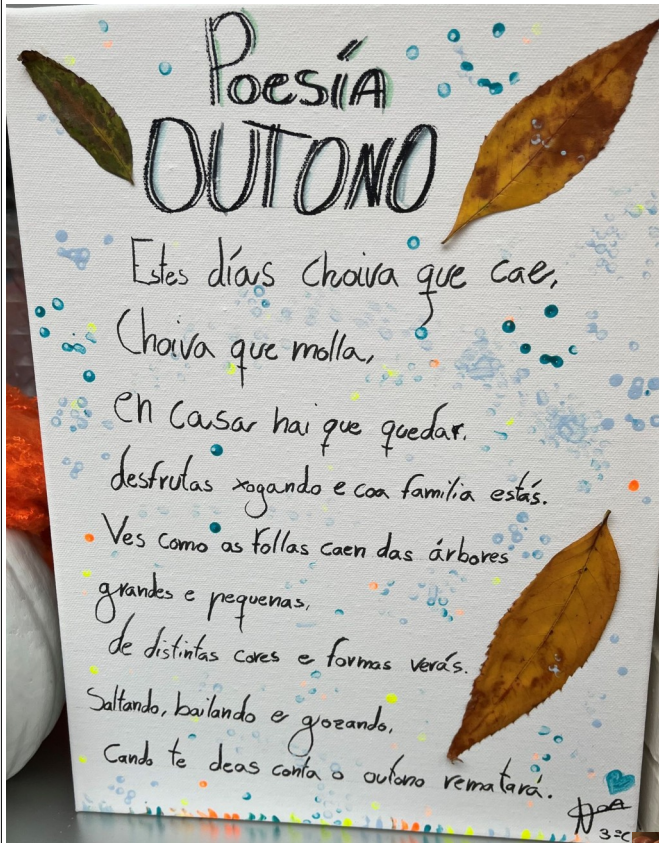 Poesía
OUTONO
Estes días choiva que cae,
Choiva que molla,
en casa hai que quedar.
desfrutas xogando e coa familia estás.
Ves como as follas caen das árbores
grandes e pequenas,
de distintas cores e formas verás.
Saltando, bailando e gozando,
Cando te deas conta o outono rematará.
3ºC